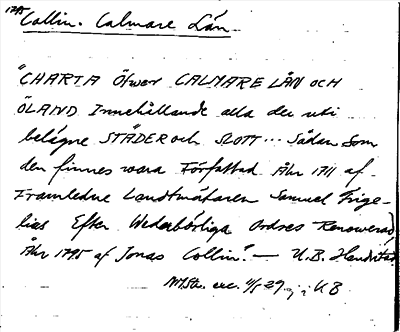 1795
Collin. Calmare Län
"CHARTA Öfwer CALMARE LÄN OCH
ÖLAND Innehållande alla der uti
belägne STÄDER och SLOTT... Sådan Som
den finnes wara Författad Åhr 1711 af
Framledne Landtmätaren Samuel Frige-
lius Efter Wederbörliga Ordres Renowerad
Åhr 1795 af Jonas Collin". — U.B. Handrit
exc. 29 UB